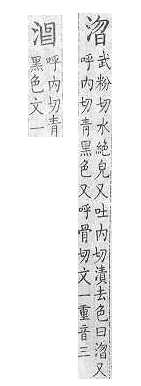 武粉切水絶皃又吐内切漬去色曰又
呼内切青黑色又呼骨切文一重音三
呼内切青
黑色文一